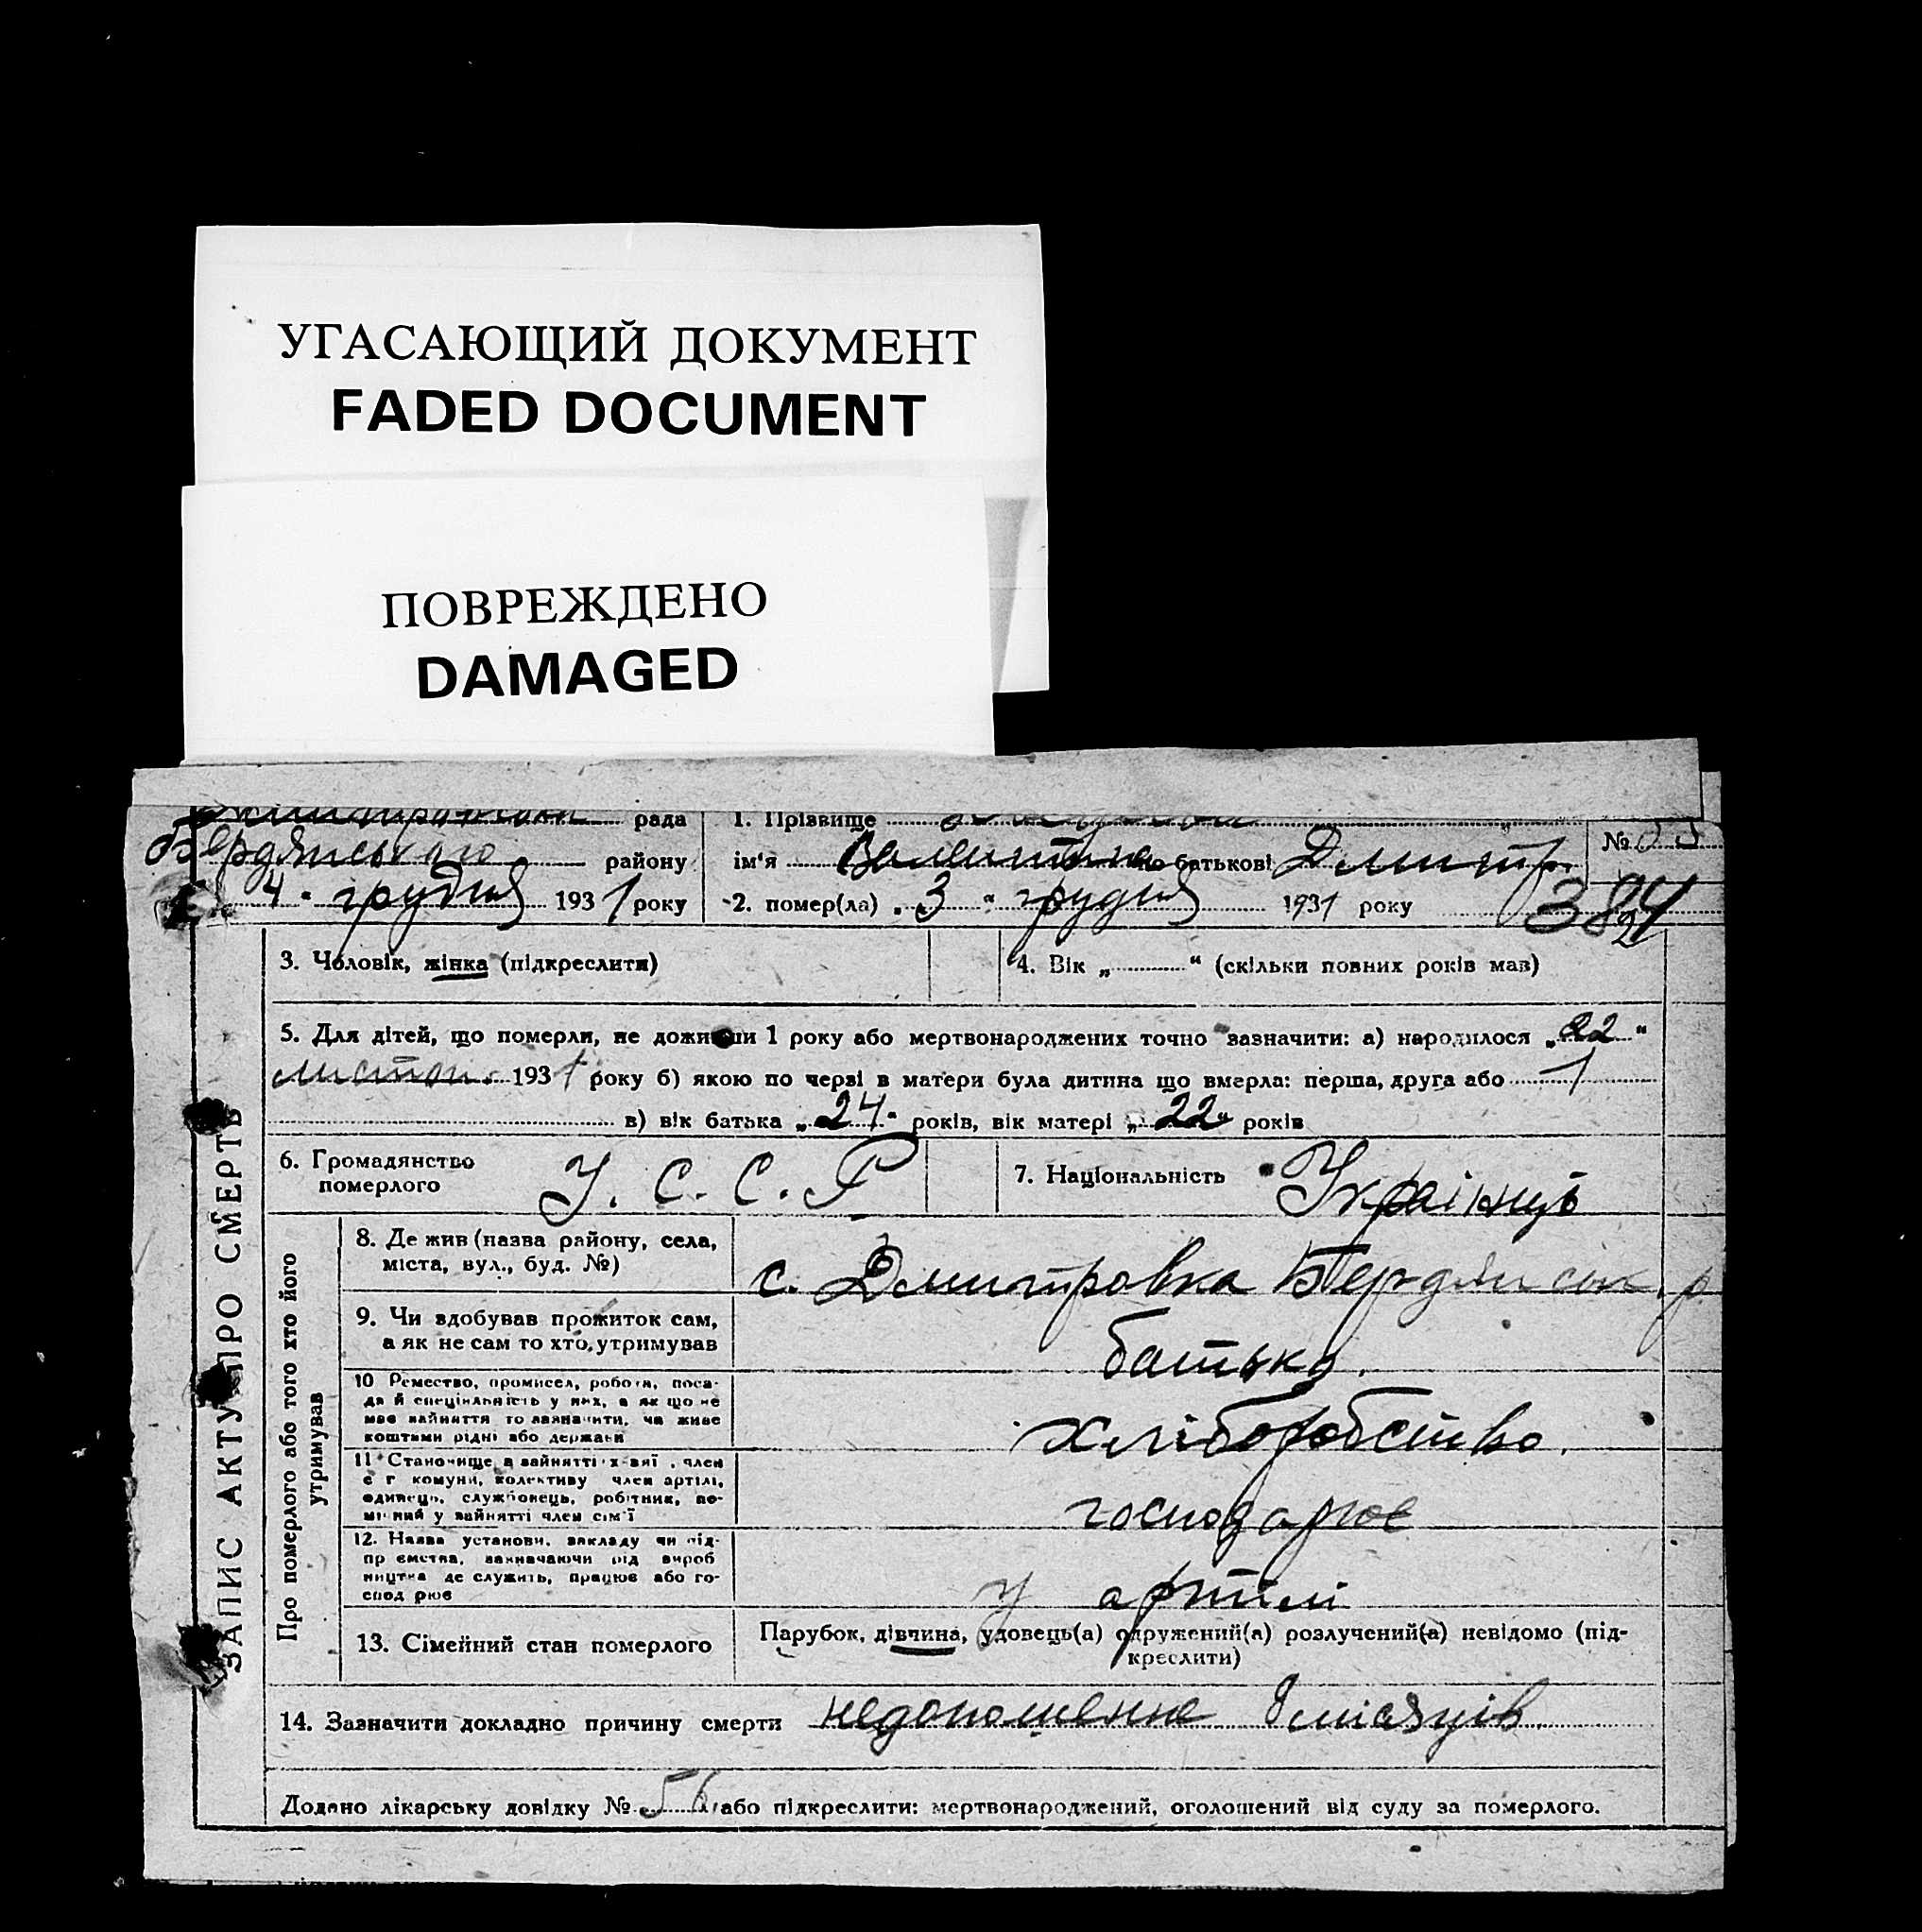 УГАСАЮЩИЙ ДОКУМЕНТ
FADED DOCUMENT
ПОВРЕЖДЕНО
DAMAGED
рада 1. Прізвище
Бердянського району ім'я Валентина по батькові Дмитр. №
4 грудня 1931 року 2. помер(ла) „3" грудня 1931 року 384
2
ЗАПИС АКТУ ПРО СМЕРТЬ
3. Чоловік, жінка (підкреслити) 4. Вік „ “ (скільки повних років мав)
5. Для дітей, що померли, не доживши 1 року або мертвонароджених точно зазначити: а) народилося „22“
листоп. 1931 року б) якою по черзі в матери була дитина що вмерла: перша, друга або 1
в) вік батька „24“ років, вік матері „22“ років
6. Громадянство померлого У. С. С. Р 7. Національність Українці
Про померлого або того хто його утримував
8. Де жив (назва району, села,
міста, вул., буд. №) с. Дмитровка Бердянськ. р
9. Чи здобував прожиток сам,
а як не сам то хто, утримував батько.
10 Ремество, промисел, робота, поса-
да й спеціяльність у них, а як що не
має зайняття то зазначити, чи живе
коштами рідні або держави хліборобство.
11 Становище в зайнятті член
с г комуни, колективу член артілі,
одинець, службовець, робітник, по-
мічний у зайнятті член сім'ї господарює
12. Назва установи, закладу чи під-
пр ємства, зазначаючи рід вироб
ництва де служить, працює або го-
спод рює у артілі
13. Сімейний стан померлого Парубок, дівчина, удовець(а) одружений(а) розлучений(а) невідомо (під-
креслити)
14. Зазначити докладно причину смерти недоношенне 8 місяців
Додано лікарську довідку № 56 або підкреслити: мертвонароджений, оголошений від суду за померлого.